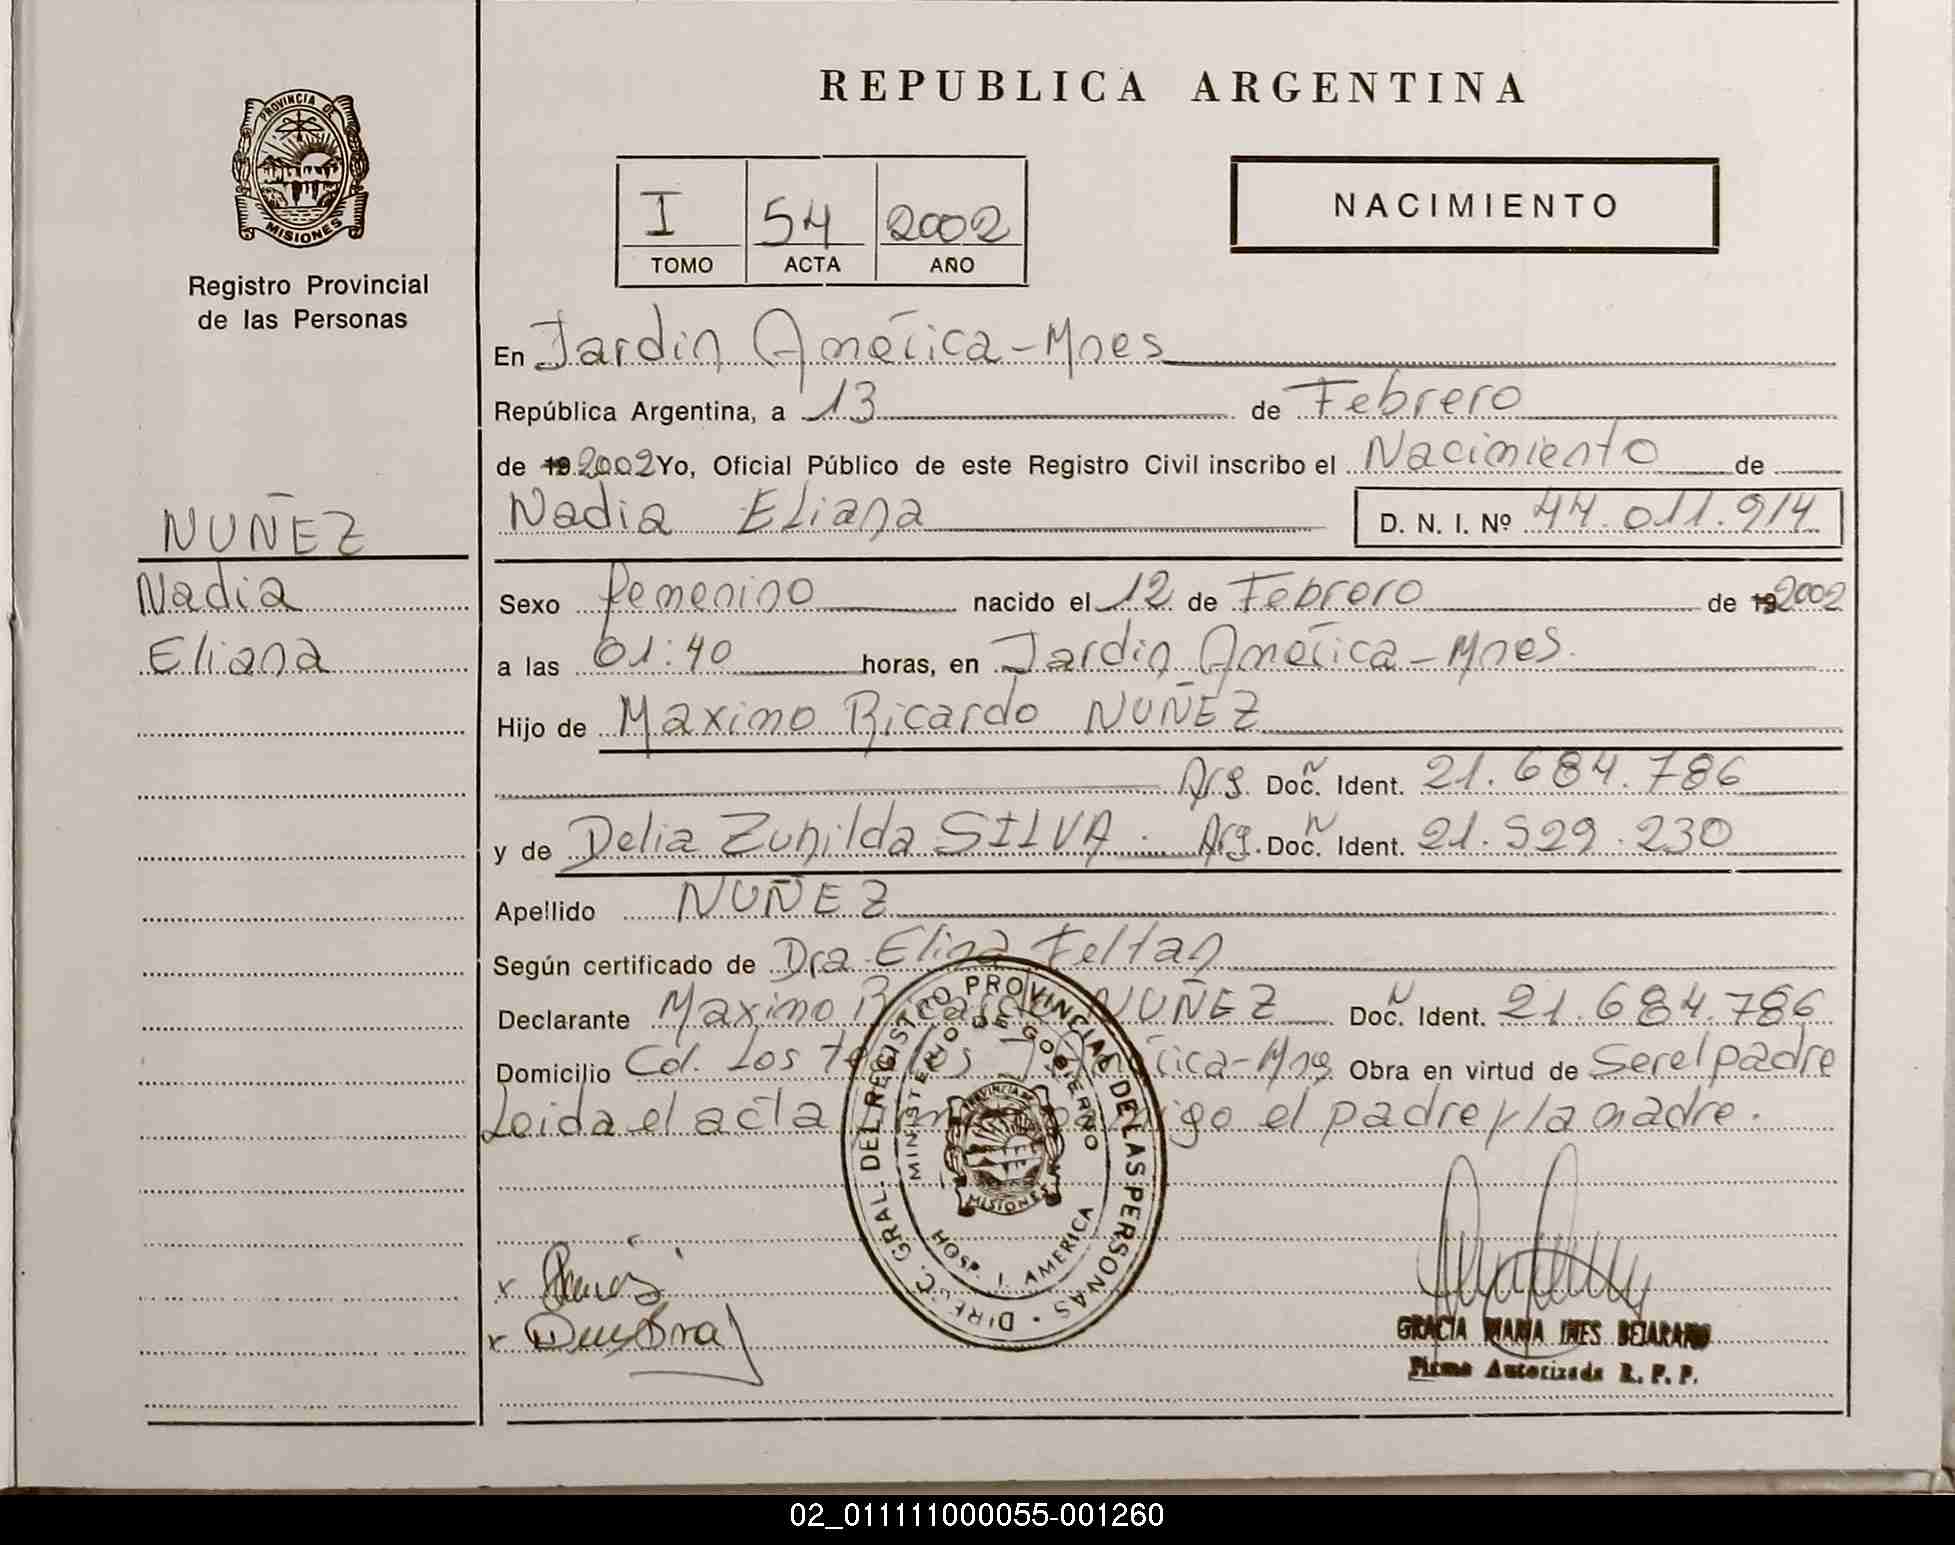 REPUBLICA ARGENTINA
PROVINCIA DE
MISIONES
Registro Provincial
de las Personas
I 54 2002
TOMO ACTA AÑO
NACIMIENTO
En Jardin América-Mnes
República Argentina, a 13 de Febrero
de 19 2002 Yo, Oficial Público de este Registro Civil inscribo el Nacimiento de
Nadia Eliana D. N. I. Nº 44.011.914
NUÑEZ
Nadia
Eliana
Sexo femenino nacido el 12 de Febrero de 19 2002
a las 01:40 horas, en Jardin América-Mnes.
Hijo de Maximo Ricardo NUÑEZ
Arg. Doc. N Ident. 21.684.786
y de Delia Zunilda SILVA. Arg. Doc. N Ident. 21.529.230
Apellido NUÑEZ
Según certificado de Dra Elina Feltan
Declarante Maximo Ricardo NUÑEZ Doc. N Ident. 21.684.786
Domicilio Cd. Los América-Mns Obra en virtud de Ser el padre
Leida el acta el padre y la madre.
DIRECC. GRAL. DEL REGISTRO PROVINCIAL DE LAS PERSONAS
MINISTERIO DE GOBIERNO
PROVINCIA DE
MISIONES
HOSP. J. AMERICA
x
x
GRACIA MARIA INES BEJARANO
Firma Autorizada R. P. P.
02_011111000055-001260